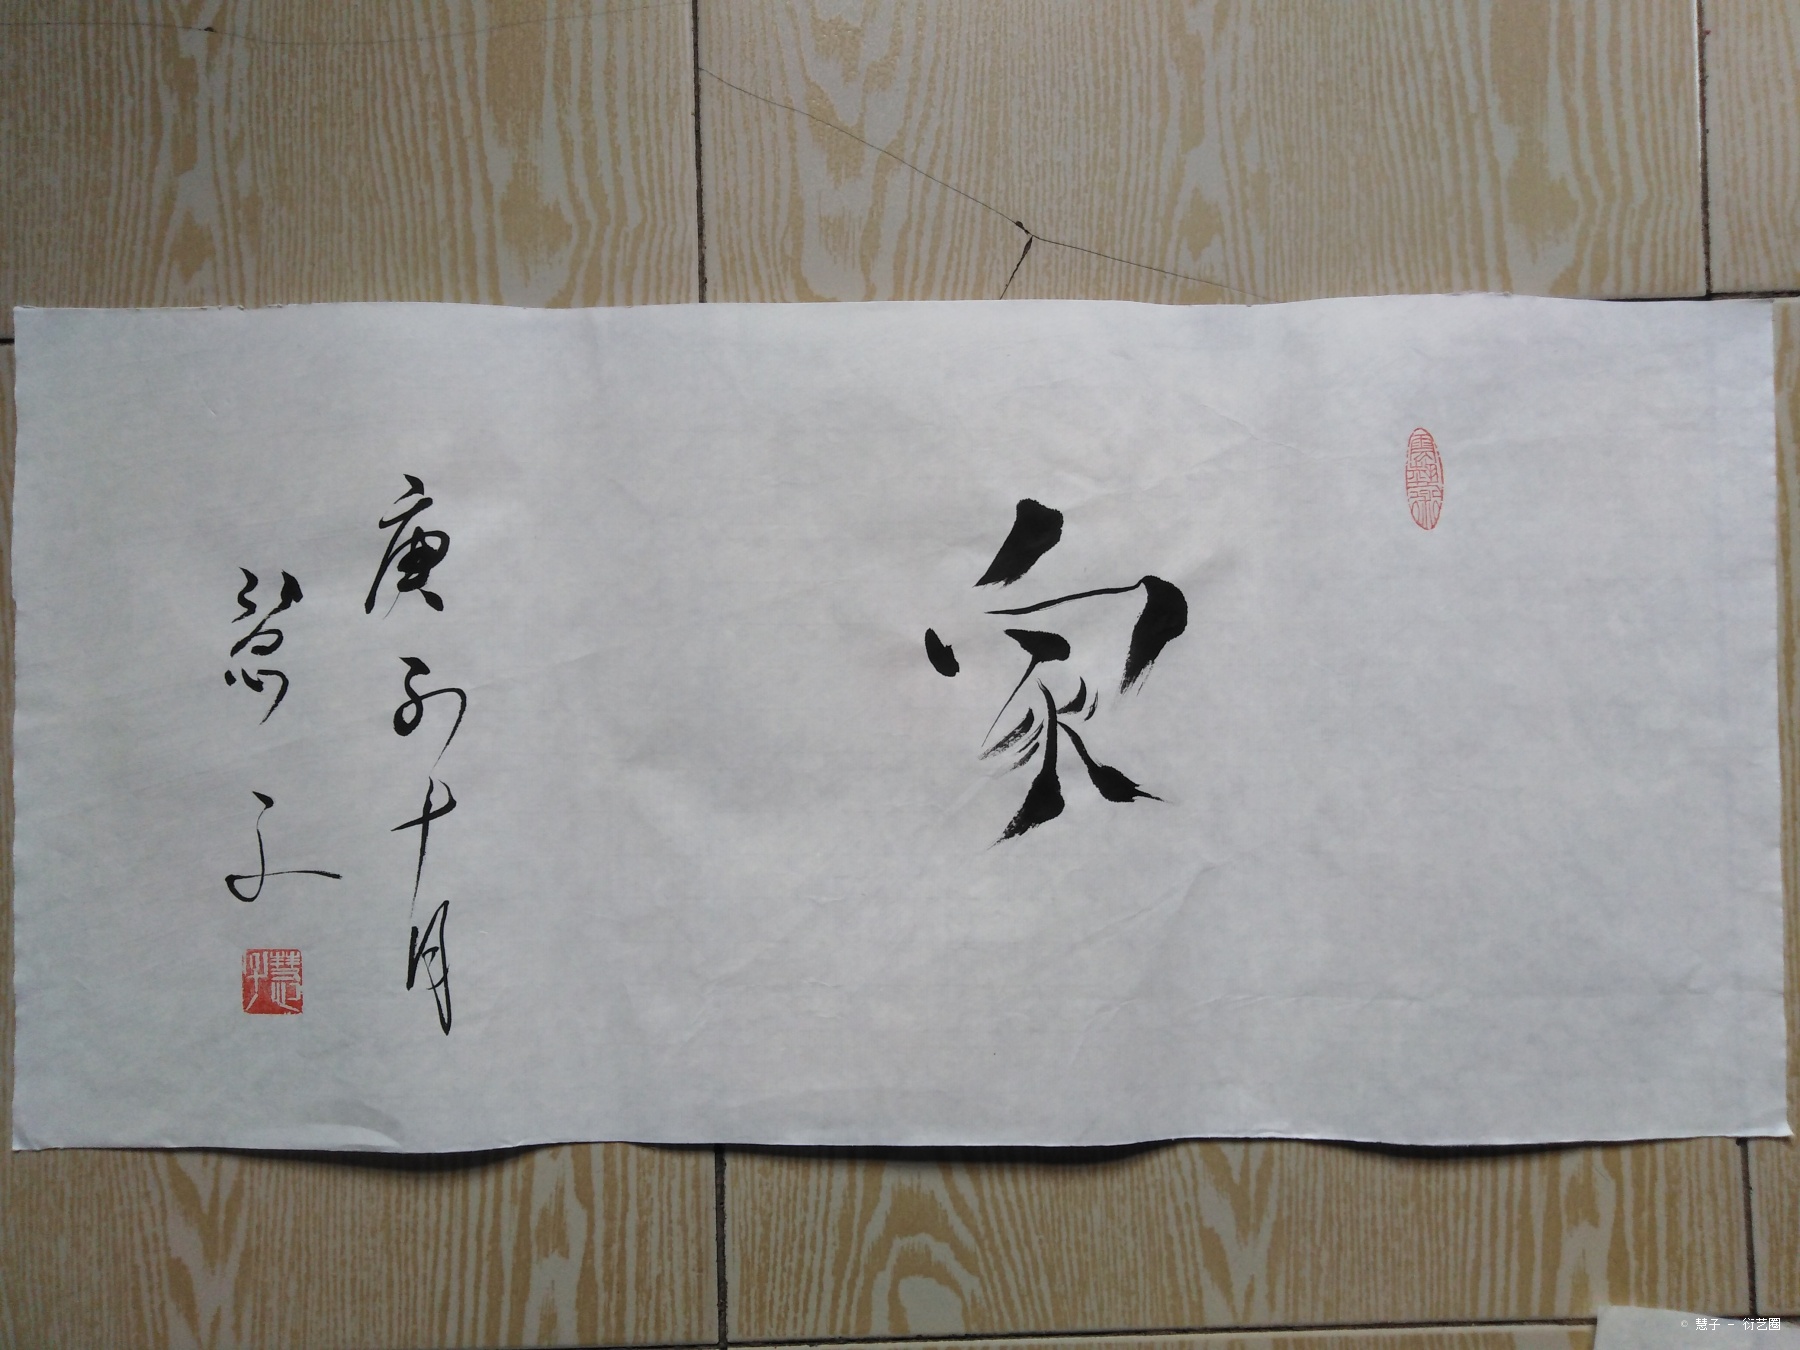 家
庚子十月
慧子
慧子
© 慧子 - 衍艺圈